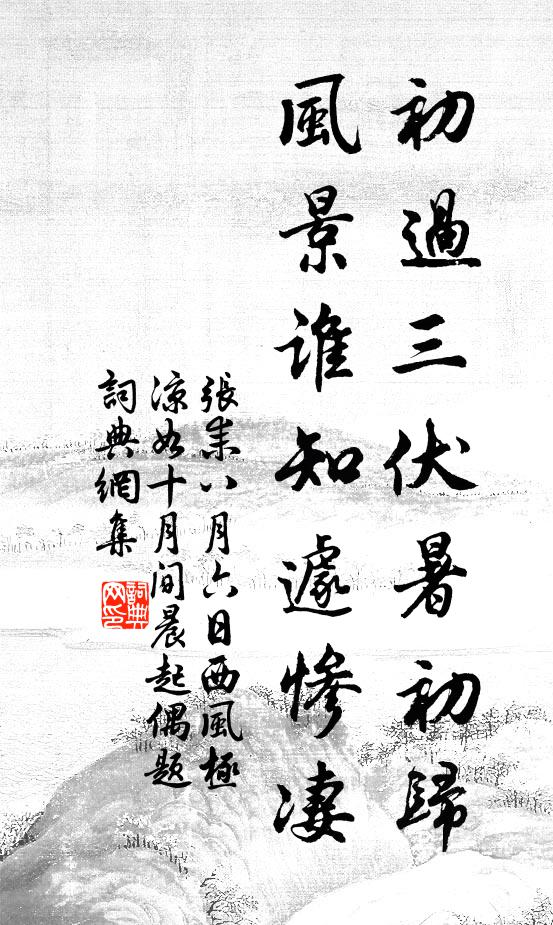 初過三伏暑初歸
風景誰知遽慘淒
張耒八月六日西風極
涼如十月間晨起偶題
詞典網集
詞典
网印